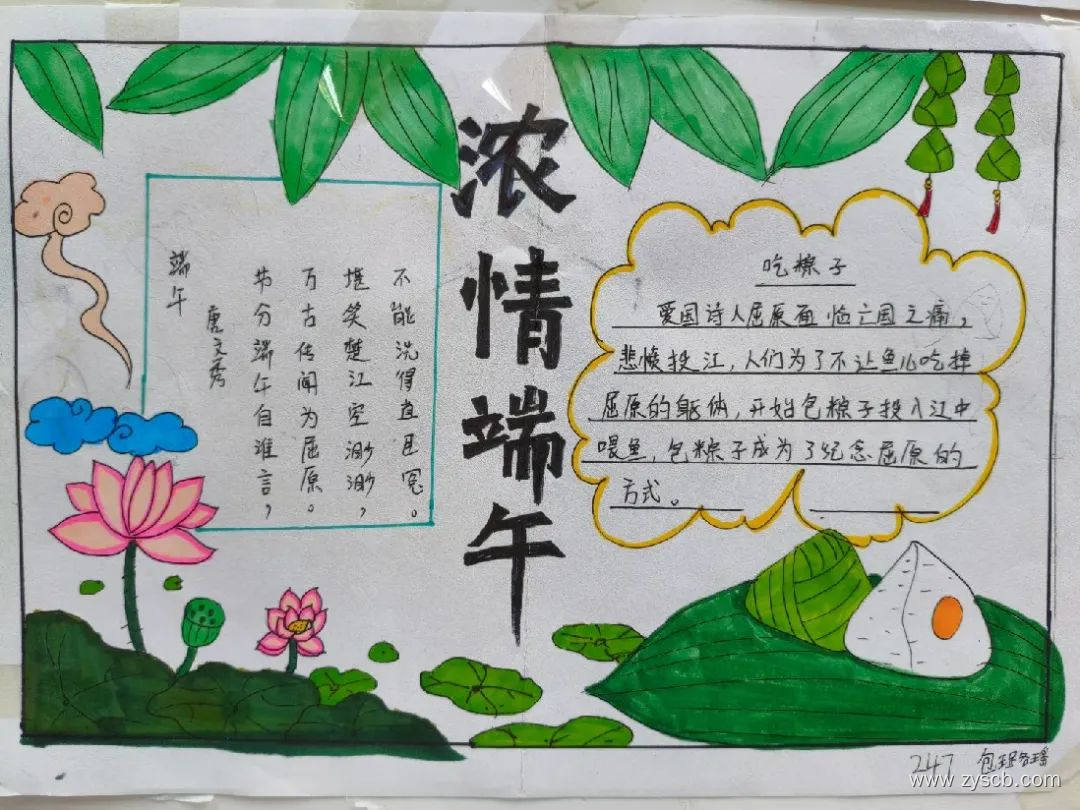 浓情端午
端午
唐文秀
节分端午自谁言，
万古传闻为屈原。
堪笑楚江空渺渺，
不能洗得直臣冤。
吃粽子
爱国诗人屈原面临亡国之痛，
悲愤投江，人们为了不让鱼儿吃掉
屈原的躯体，开始包粽子投入江中
喂鱼，包粽子成为了纪念屈原的
方式。
247 包
www.zyscb.com